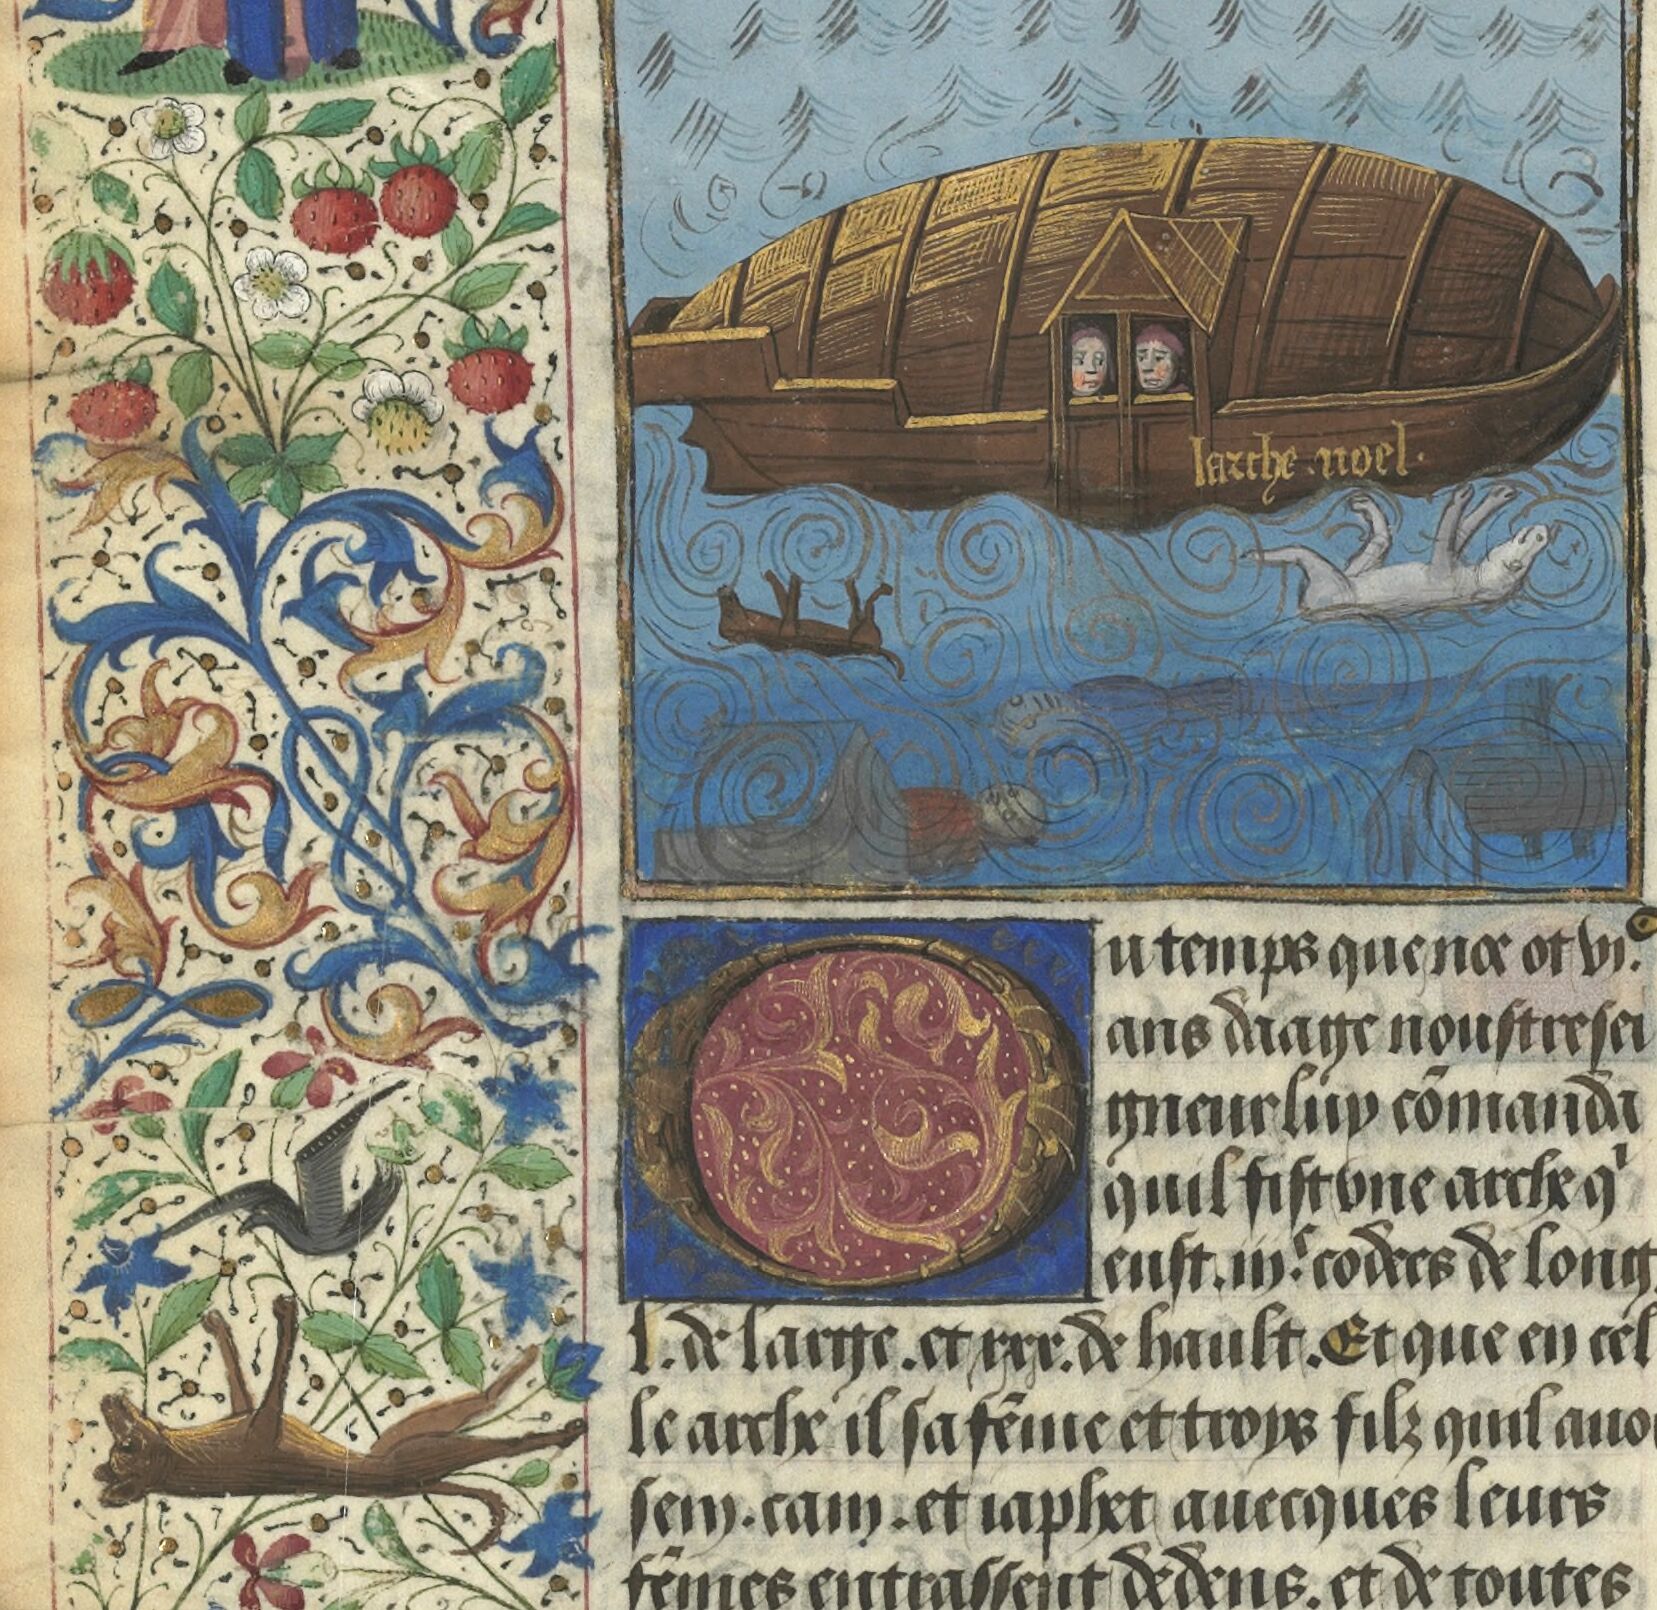 larche noel.
u temps que noe ot vi.c
ans daage nostre sei
gneur luy cōmanda
quil fist vne arche q'
eust .iii.c codees de long.
l. de large. et xxx. de hault. Et que en cel
le arche il sa fēme et troys filz quil auo
sem. cam. et iaphet auecques leurs
fēmes entrassent dedens. et de toutes